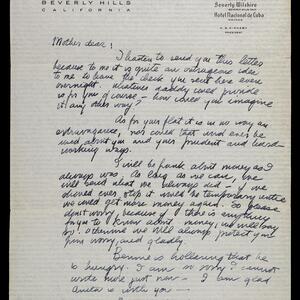 BEVERLY HILLS
CALIFORNIA
Beverly Wilshire
Hotel Nacional de Cuba
PRESIDENT
Mother dear;
I hasten to send you this letter
because to me it is quite an outrageous idea
to me to leave the check you sent here even
overnight. Whatever daddy could provide
is for you of course – how could you imagine
it any other way?
As for your flat it is in no way an
extravagance, nor could that word ever be
used about you and your prudent and
ways.
I will be frank about money as I
always was. As long as we have, we
will send what we always did – if we
ever stop it would be temporary until
we could get more money again. So please
don't worry, because if there is anything
for you to know about money, we will say
so. Otherwise we will always protect you
from worry, and gladly.
Bennie is hollering that he
is hungry. I am so sorry I cannot
write more just now – I am glad
Anita is with you –